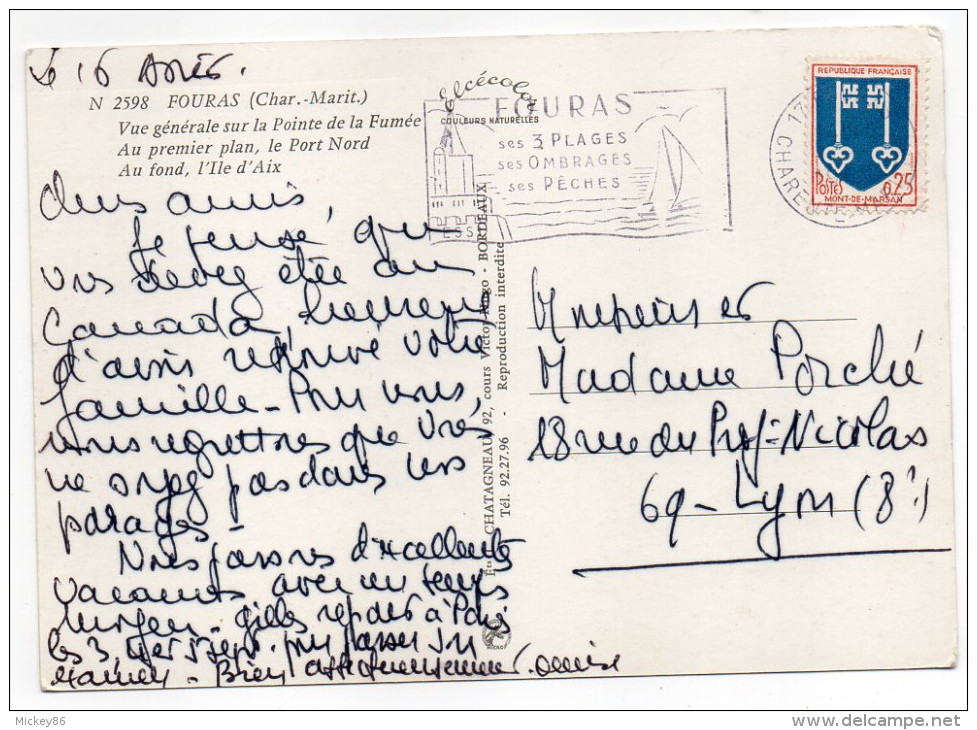 Le 16 Août.
N 2598 FOURAS (Char.-Marit.)
Vue générale sur la Pointe de la Fumée
Au premier plan, le Port Nord
Au fond, l'Ile d'Aix
Elcécolor
COULEURS NATURELLES
FOURAS
ses 3 PLAGES
ses OMBRAGES
ses PÊCHES
REPUBLIQUE FRANÇAISE
POSTES 0,25
MONT-DE-MARSAN
17
CHARENTE
Chers amis,
Je pense, que
vous devez être au
Canada, heureux
d'avoir retrouvé votre
famille - Pour nous,
nous regrettons que vous
ne soyez pas dans nos
parages -
Nous passons d'excellentes
vacances avec un temps
moyen - Gilles repart à Paris
les 3, 4 et 5 Sept. pour passer son
examen - Bien affectueusement.
CHATAGNEAU, 92, cours Victor Hugo - BORDEAUX
Tél. 92.27.96 - Reproduction interdite
Monsieur et
Madame Porché
18 rue du Prof. Nicolas
69 - Lyon (8e)
Mickey86
© delcampe.net